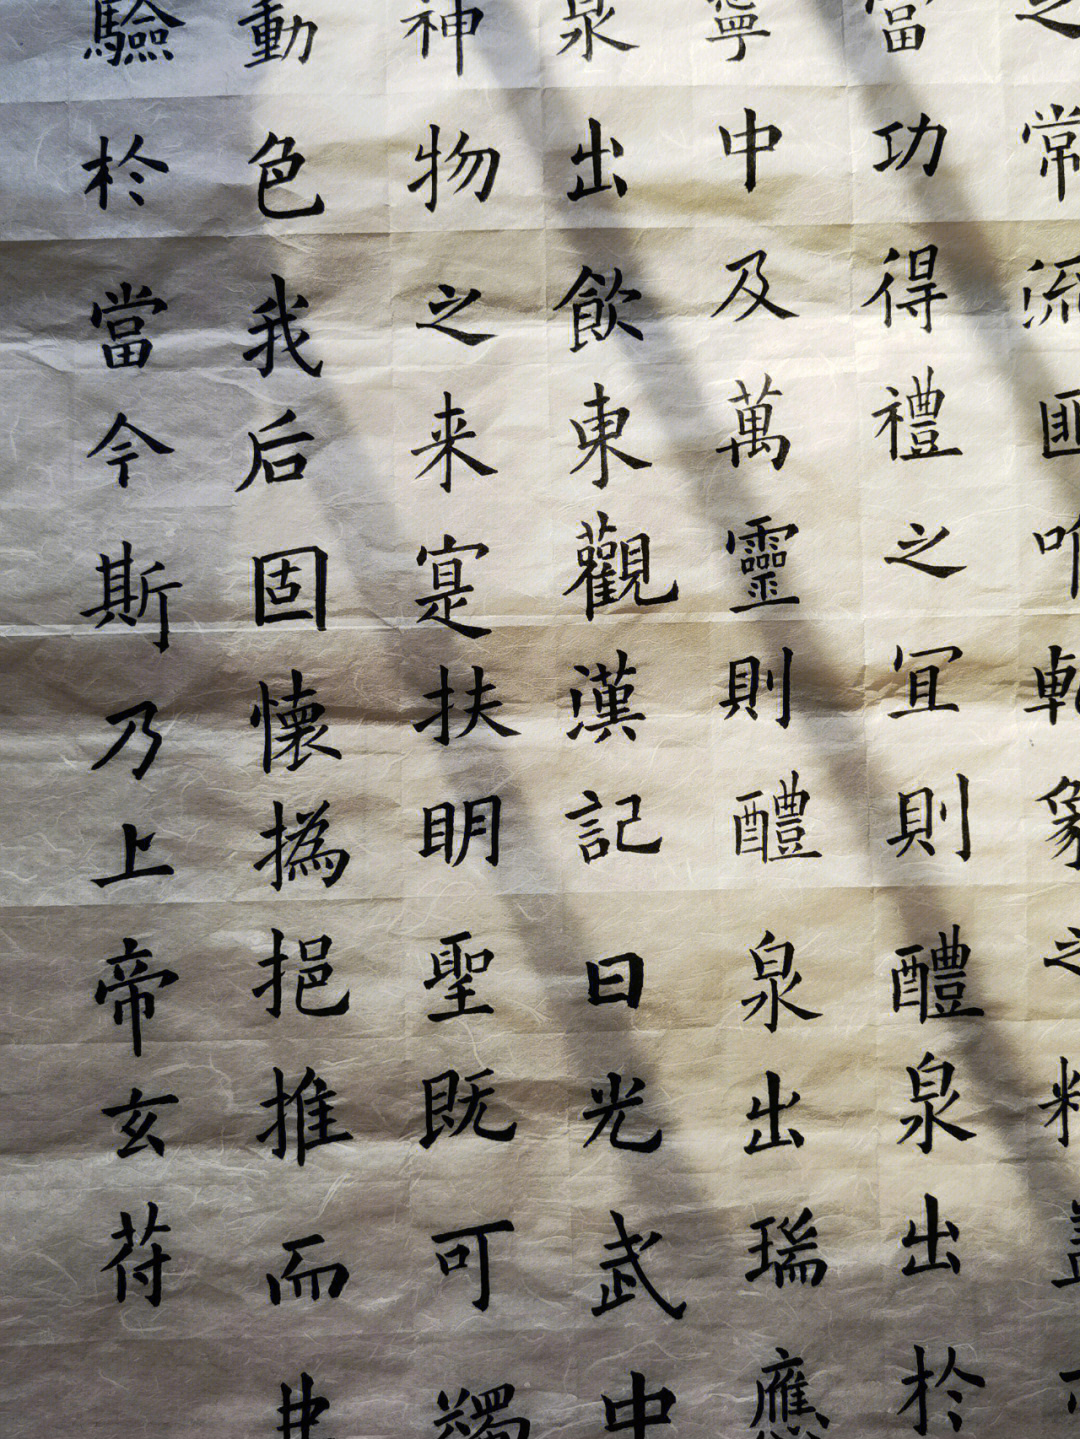 之常流匪唯乹象之精蓋
當功得禮之宜則醴泉出於
寧中及萬靈則醴泉出瑞應
泉出飲東觀漢記曰光武中
神物之来寔扶眀聖既可蠲
動色我后固懷撝挹推而弗
驗於當今斯乃上帝玄苻